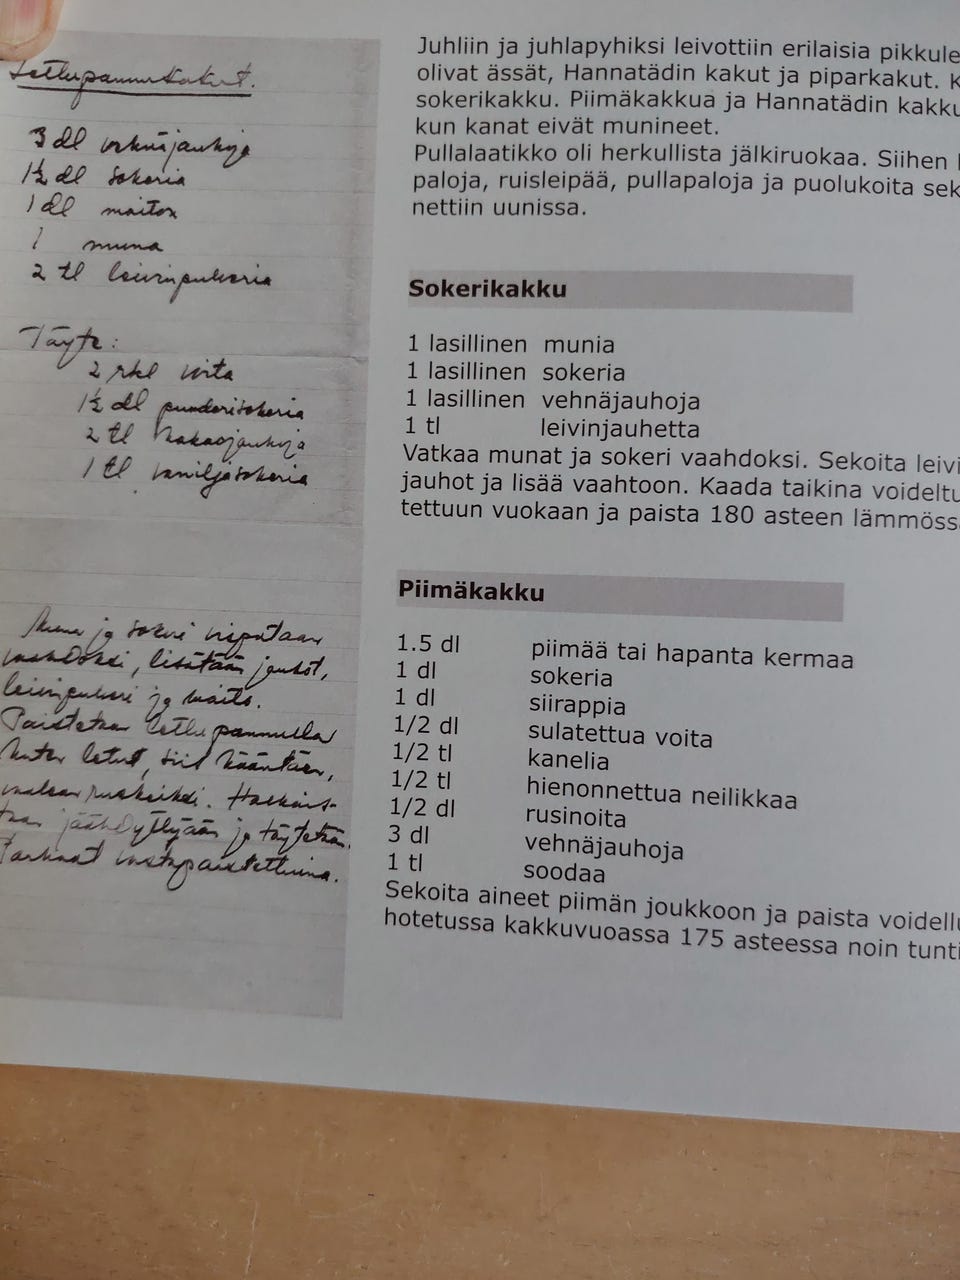 Lettupannukakut.
3 dl vehnäjauhoja
1½ dl sokeria
1 dl maitoa
1 muna
2 tl leivinpulveria
Täyte:
2 rkl voita
1½ dl puuderisokeria
2 tl kakaojauhoja
1 tl vaniljasokeria
Muna ja sokeri vispataan
vaahdoksi, lisätään jauhot,
leivinpulveri ja maito.
Paistetaan lettupannulla
kuten letut, siis kääntäen,
ruskeiksi.
jäähdyttyään ja täytetään.
Parhaat vastapaistettuina.
Juhliin ja juhlapyhiksi leivottiin erilaisia pikkule
olivat ässät, Hannatädin kakut ja piparkakut. K
sokerikakku. Piimäkakkua ja Hannatädin kakku
kun kanat eivät munineet.
Pullalaatikko oli herkullista jälkiruokaa. Siihen
paloja, ruisleipää, pullapaloja ja puolukoita sek
nettiin uunissa.
Sokerikakku
1 lasillinen munia
1 lasillinen sokeria
1 lasillinen vehnäjauhoja
1 tl leivinjauhetta
Vatkaa munat ja sokeri vaahdoksi. Sekoita leivi
jauhot ja lisää vaahtoon. Kaada taikina voideltu
tettuun vuokaan ja paista 180 asteen lämmössä
Piimäkakku
1.5 dl piimää tai hapanta kermaa
1 dl sokeria
1 dl siirappia
1/2 dl sulatettua voita
1/2 tl kanelia
1/2 tl hienonnettua neilikkaa
1/2 dl rusinoita
3 dl vehnäjauhoja
1 tl soodaa
Sekoita aineet piimän joukkoon ja paista voidellu
hotetussa kakkuvuoassa 175 asteessa noin tunti